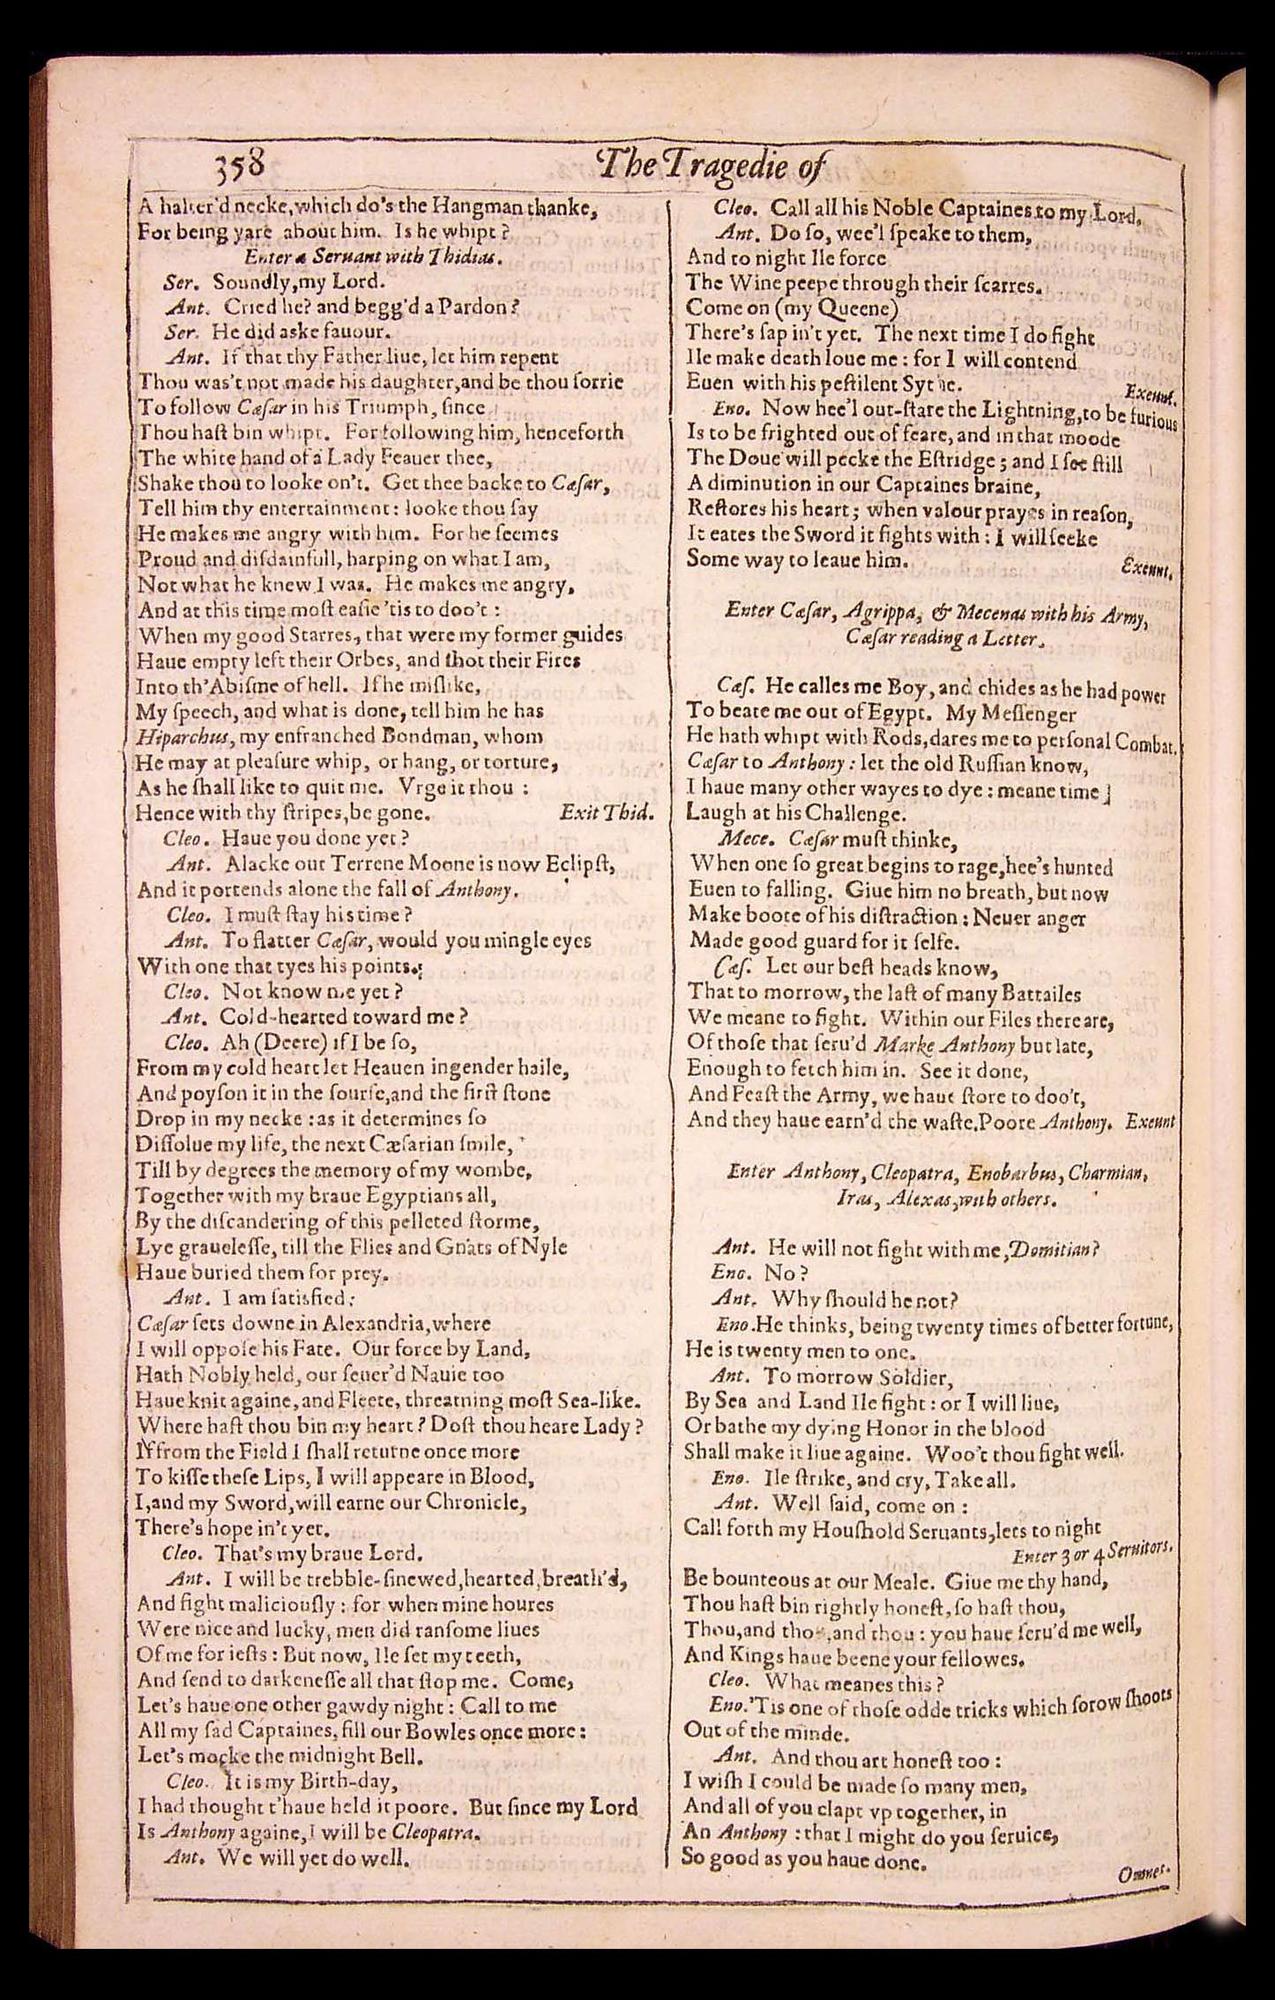 358
The Tragedie of
A halter'd necke, which do's the Hangman thanke,
For being yare about him. Is he whipt?
Enter a Seruant with Thidias.
Ser. Soundly, my Lord.
Ant. Cried he? and begg'd a Pardon?
Ser. He did aske fauour.
Ant. If that thy Father liue, let him repent
Thou was't not made his daughter, and be thou ſorrie
To follow Cæſar in his Triumph, ſince
Thou haſt bin whipt. For following him, henceforth
The white hand of a Lady Feauer thee,
Shake thou to looke on't. Get thee backe to Cæſar,
Tell him thy entertainment: looke thou ſay
He makes me angry with him. For he ſeemes
Proud and diſdainfull, harping on what I am,
Not what he knew I was. He makes me angry,
And at this time moſt eaſie 'tis to doo't:
When my good Starres, that were my former guides
Haue empty left their Orbes, and ſhot their Fires
Into th'Abiſme of hell. If he miſlike,
My ſpeech, and what is done, tell him he has
Hiparchus, my enfranched Bondman, whom
He may at pleaſure whip, or hang, or torture,
As he ſhall like to quit me. Vrge it thou:
Hence with thy ſtripes, be gone. Exit Thid.
Cleo. Haue you done yet?
Ant. Alacke our Terrene Moone is now Eclipſt,
And it portends alone the fall of Anthony.
Cleo. I muſt ſtay his time?
Ant. To flatter Cæſar, would you mingle eyes
With one that tyes his points.
Cleo. Not know me yet?
Ant. Cold-hearted toward me?
Cleo. Ah (Deere) if I be ſo,
From my cold heart let Heauen ingender haile,
And poyſon it in the ſourſe, and the firſt ſtone
Drop in my necke: as it determines ſo
Diſſolue my life, the next Cæſarian ſmile,
Till by degrees the memory of my wombe,
Together with my braue Egyptians all,
By the diſcandering of this pelleted ſtorme,
Lye graueleſſe, till the Flies and Gnats of Nyle
Haue buried them for prey.
Ant. I am ſatisfied:
Cæſar ſets downe in Alexandria, where
I will oppoſe his Fate. Our force by Land,
Hath Nobly held, our ſeuer'd Nauie too
Haue knit againe, and Fleete, threatning moſt Sea-like.
Where haſt thou bin my heart? Doſt thou heare Lady?
If from the Field I ſhall returne once more
To kiſſe theſe Lips, I will appeare in Blood,
I, and my Sword, will earne our Chronicle,
There's hope in't yet.
Cleo. That's my braue Lord.
Ant. I will be trebble-ſinewed, hearted, breath'd,
And fight maliciouſly: for when mine houres
Were nice and lucky, men did ranſome liues
Of me for ieſts: But now, Ile ſet my teeth,
And ſend to darkeneſſe all that ſtop me. Come,
Let's haue one other gawdy night: Call to me
All my ſad Captaines, fill our Bowles once more:
Let's mocke the midnight Bell.
Cleo. It is my Birth-day,
I had thought t'haue held it poore. But ſince my Lord
Is Anthony againe, I will be Cleopatra.
Ant. We will yet do well.
Cleo. Call all his Noble Captaines to my Lord,
Ant. Do ſo, wee'l ſpeake to them,
And to night Ile force
The Wine peepe through their ſcarres.
Come on (my Queene)
There's ſap in't yet. The next time I do fight
Ile make death loue me: for I will contend
Euen with his peſtilent Sythe. Exeunt.
Eno. Now hee'l out-ſtare the Lightning, to be furious
Is to be frighted out of feare, and in that moode
The Doue will pecke the Eſtridge; and I ſee ſtill
A diminution in our Captaines braine,
Reſtores his heart; when valour prayes in reaſon,
It eates the Sword it fights with: I will ſeeke
Some way to leaue him. Exeunt.
Enter Cæſar, Agrippa, & Mecenas with his Army,
Cæſar reading a Letter.
Cæſ. He calles me Boy, and chides as he had power
To beate me out of Egypt. My Meſſenger
He hath whipt with Rods, dares me to perſonal Combat.
Cæſar to Anthony: let the old Ruffian know,
I haue many other wayes to dye: meane time
Laugh at his Challenge.
Mece. Cæſar muſt thinke,
When one ſo great begins to rage, hee's hunted
Euen to falling. Giue him no breath, but now
Make boote of his diſtraction: Neuer anger
Made good guard for it ſelfe.
Cæſ. Let our beſt heads know,
That to morrow, the laſt of many Battailes
We meane to fight. Within our Files there are,
Of thoſe that ſeru'd Marke Anthony but late,
Enough to fetch him in. See it done,
And Feaſt the Army, we haue ſtore to doo't,
And they haue earn'd the waſte. Poore Anthony. Exeunt
Enter Anthony, Cleopatra, Enobarbus, Charmian,
Iras, Alexas, with others.
Ant. He will not fight with me, Domitian?
Eno. No?
Ant. Why ſhould he not?
Eno. He thinks, being twenty times of better fortune,
He is twenty men to one.
Ant. To morrow Soldier,
By Sea and Land Ile fight: or I will liue,
Or bathe my dying Honor in the blood
Shall make it liue againe. Woo't thou fight well.
Eno. Ile ſtrike, and cry, Take all.
Ant. Well ſaid, come on:
Call forth my Houſhold Seruants, lets to night
Enter 3 or 4 Seruitors.
Be bounteous at our Meale. Giue me thy hand,
Thou haſt bin rightly honeſt, ſo haſt thou,
Thou, and thou, and thou: you haue ſeru'd me well,
And Kings haue beene your fellowes.
Cleo. What meanes this?
Eno. 'Tis one of thoſe odde tricks which ſorow ſhoots
Out of the minde.
Ant. And thou art honeſt too:
I wiſh I could be made ſo many men,
And all of you clapt vp together, in
An Anthony: that I might do you ſeruice,
So good as you haue done.
Omnes.